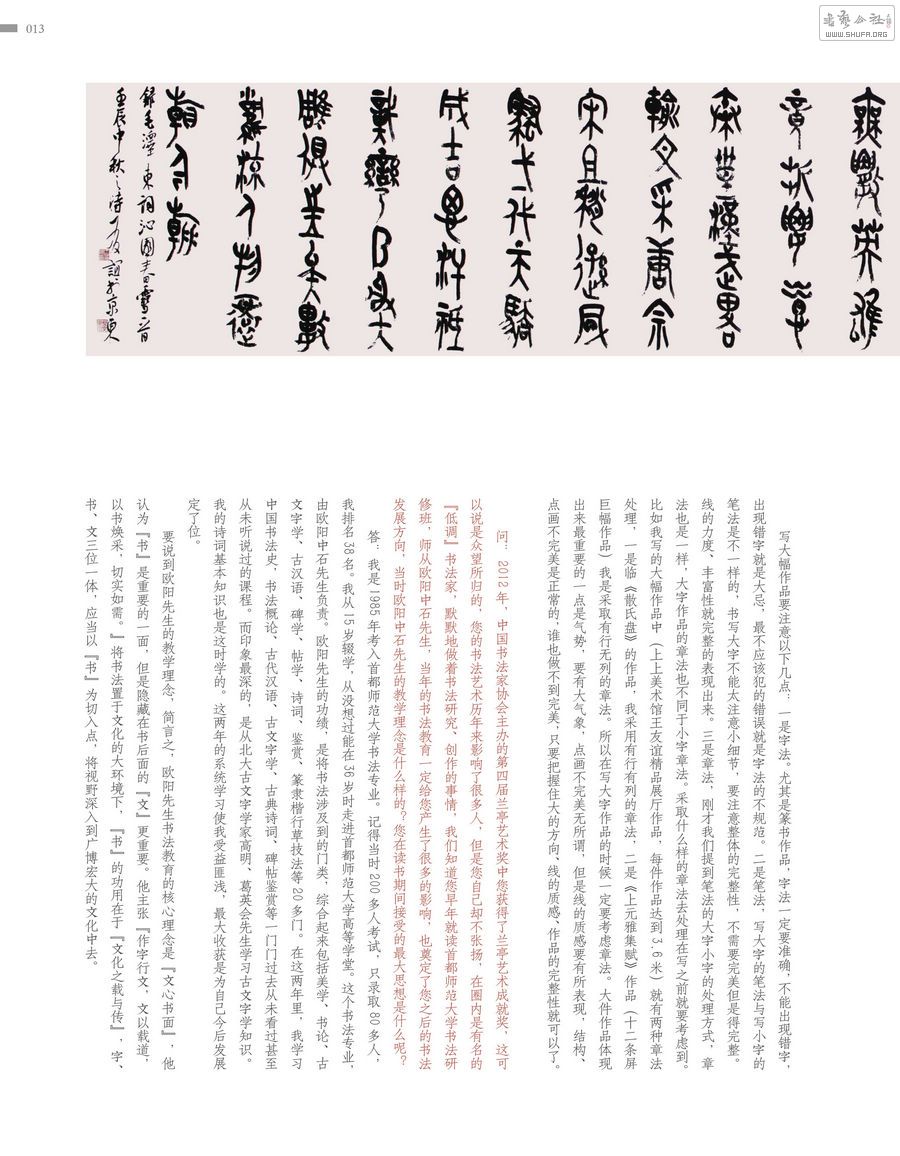 013
書藝公社
WWW.SHUFA.ORG
無數英雄
竞折腰惜
秦皇漢武略
輸文采唐宗
宋且稍遜風
騷一代天驕
成吉思汗祇
識彎弓射大
雕俱往矣數
風流人物還
看今朝
錄毛澤東詞沁園春雪一首
壬辰中秋之时友谊於京東
写大幅作品要注意以下几点：一是字法。尤其是篆书作品，字法一定要准确，不能出现错字，
出现错字就是大忌，最不应该犯的错误就是字法的不规范。二是笔法，写大字的笔法与写小字的
笔法是不一样的，书写大字不能太注意小细节，要注意整体的完整性，不需要完美但是得完整。
线的力度、丰富性就完整的表现出来。三是章法，刚才我们提到笔法的大字小字的处理方式，章
法也是一样，大字作品的章法也不同于小字章法。采取什么样的章法去处理在写之前就要考虑到。
比如我写的大幅作品中（上上美术馆王友谊精品展厅作品，每件作品达到3.6米）就有两种章法
处理，一是临《散氏盘》的作品，我采用有行有列的章法，二是《上元雅集赋》作品（十二条屏
巨幅作品）我是采取有行无列的章法。所以在写大字作品的时候一定要考虑章法。大件作品体现
出来最重要的一点是气势，要有大气象，点画不完美无所谓，但是线的质感要有所表现，结构、
点画不完美是正常的，谁也做不到完美，只要把握住大的方向、线的质感、作品的完整性就可以了。
问：2012年，中国书法家协会主办的第四届兰亭艺术奖中您获得了兰亭艺术成就奖，这可
以说是众望所归的，您的书法艺术历年来影响了很多人，但是您自己却不张扬，在圈内是有名的
『低调』书法家，默默地做着书法研究、创作的事情，我们知道您早年就读首都师范大学书法研
修班，师从欧阳中石先生，当年的书法教育一定给您产生了很多的影响，也奠定了您之后的书法
发展方向，当时欧阳中石先生的教学理念是什么样的？您在读书期间接受的最大思想是什么呢？
答：我是1985年考入首都师范大学书法专业。记得当时200多人考试，只录取80多人，
我排名38名。我从15岁辍学，从没想过能在36岁时走进首都师范大学高等学堂。这个书法专业，
由欧阳中石先生负责。欧阳先生的功绩，是将书法涉及到的门类，综合起来包括美学、书论、古
文字学、古汉语、碑学、帖学、诗词、鉴赏、篆隶楷行草技法等20多门。在这两年里，我学习
中国书法史，书法概论、古代汉语、古文字学、古典诗词、碑帖鉴赏等一门门过去从未看过甚至
从未听说过的课程。而印象最深的，是从北大古文字学家高明、葛英会先生学习古文字学知识。
我的诗词基本知识也是这时学的。这两年的系统学习使我受益匪浅，最大收获是为自己今后发展
定了位。
要说到欧阳先生的教学理念，简言之，欧阳先生书法教育的核心理念是『文心书面』，他
认为『书』是重要的一面，但是隐藏在书后面的『文』更重要。他主张『作字行文，文以载道，
以书焕采，切实如需。』将书法置于文化的大环境下，『书』的功用在于『文化之载与传』，字、
书、文三位一体，应当以『书』为切入点，将视野深入到广博宏大的文化中去。